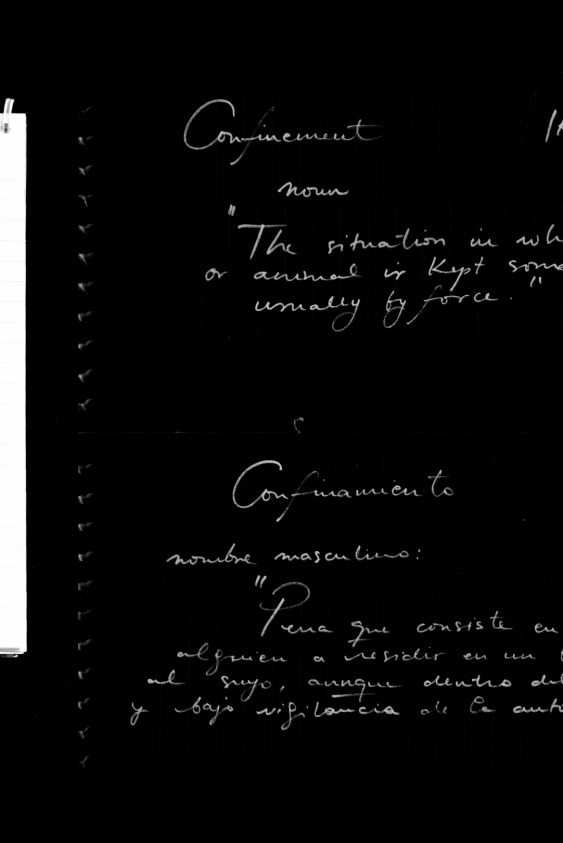 Confinement
noun
"The situation in wh
or animal is kept some
usually by force."
Confinamiento
nombre masculino:
"Pena que consiste en
alguien a residir en un
al suyo, aunque dentro del
y bajo vigilancia de la auto